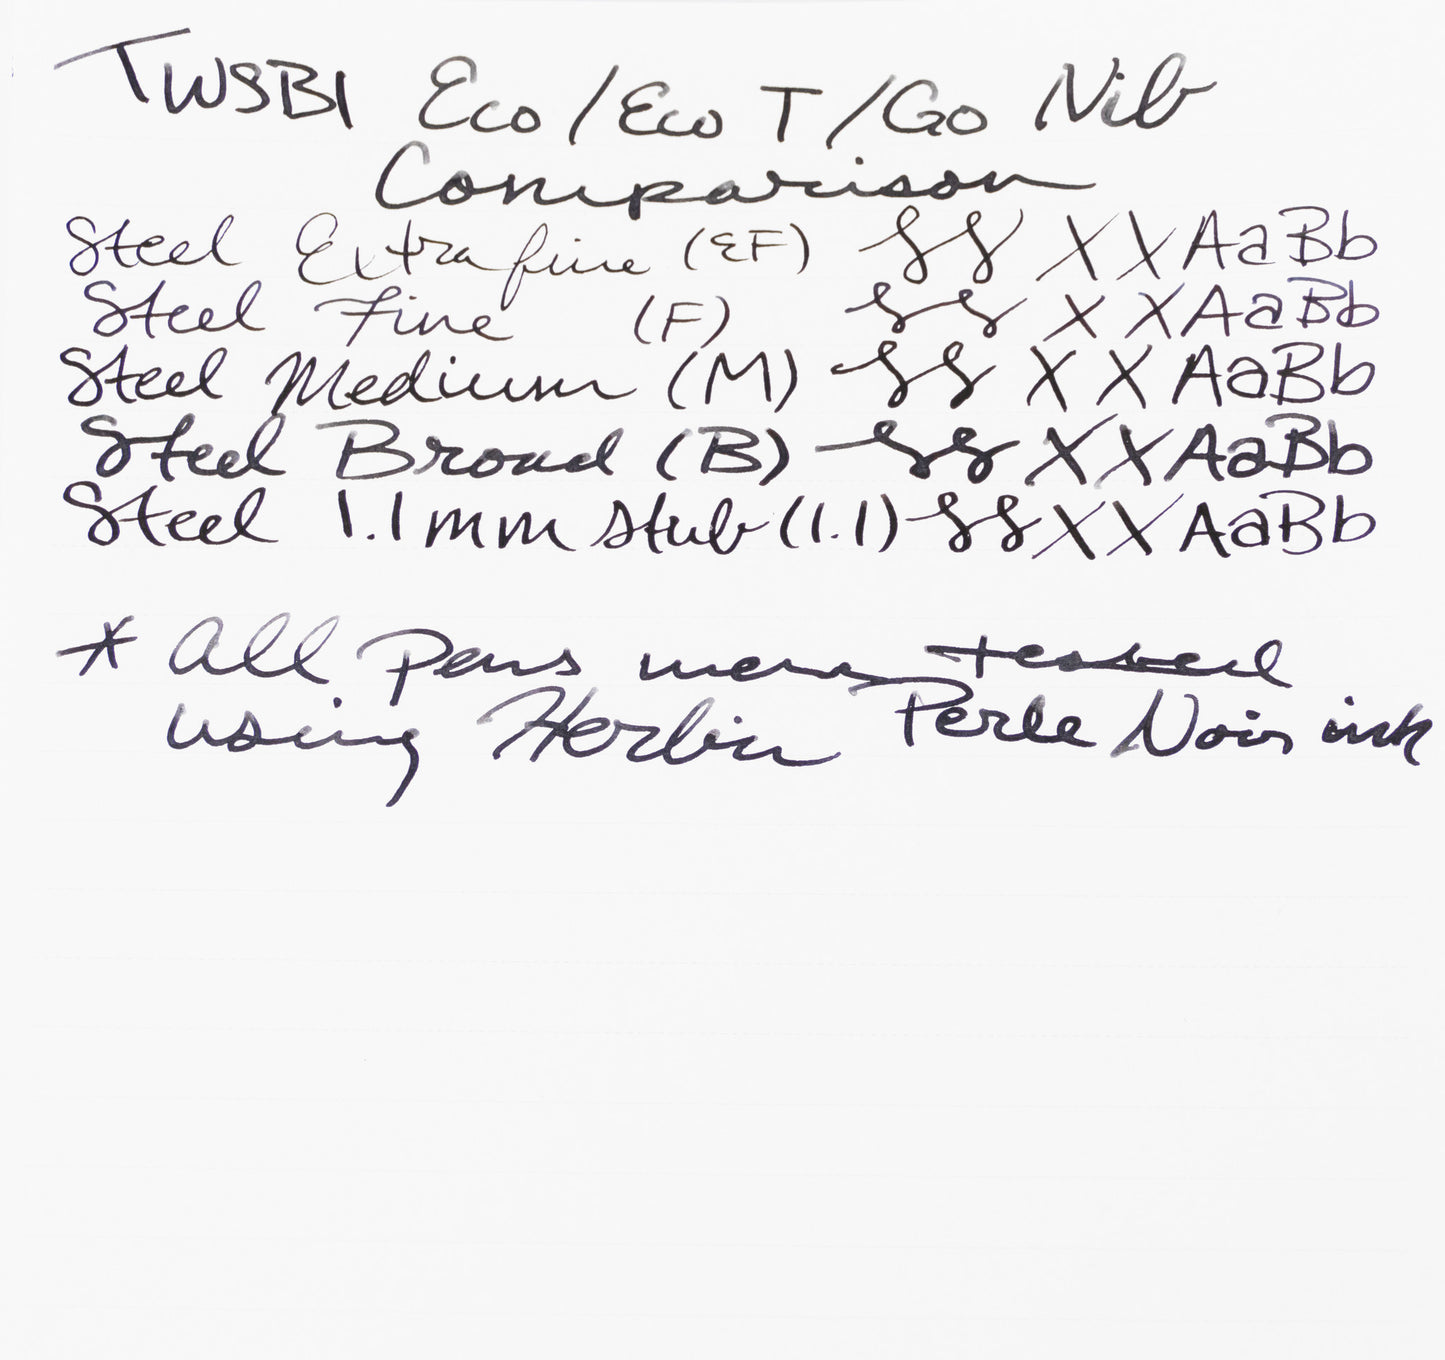 TWSBI Eco/Eco T/Go Nib
Comparison
Steel Extra fine (EF) SS XX AaBb
Steel Fine (F) SS XX AaBb
Steel Medium (M) SS XX AaBb
Steel Broad (B) SS XX AaBb
Steel 1.1mm stub (1.1) SS XX AaBb
* All pens were tested
using Herbin Perle Noir ink